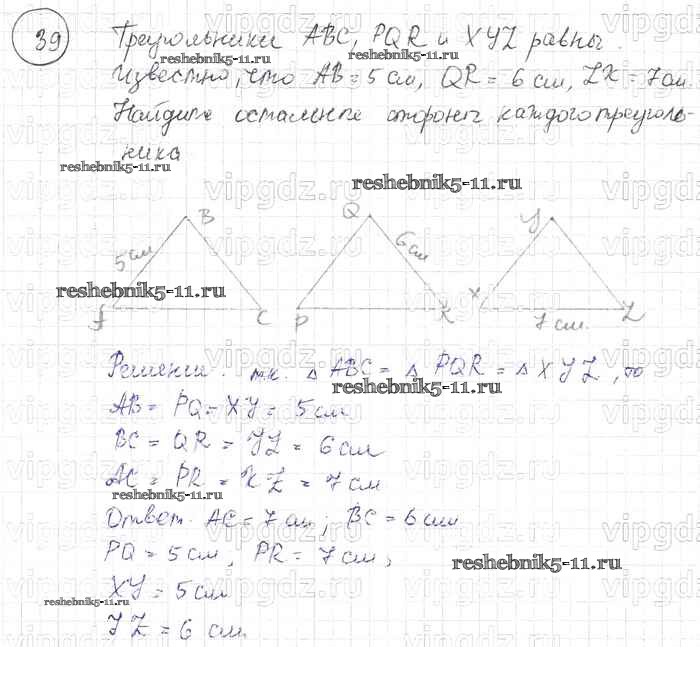 39
Треугольники ABC, PQR и XYZ равны.
Известно, что AB = 5 см, QR = 6 см, ZX = 7 см.
Найдите остальные стороны каждого треуголь-
ника
reshebnik5-11.ru
reshebnik5-11.ru
reshebnik5-11.ru
reshebnik5-11.ru
B Q Y
5 см 6 см
reshebnik5-11.ru
A C P R X Z
7 см.
Решение. т.к. △ ABC = △ PQR = △ XYZ, то
reshebnik5-11.ru
AB = PQ = XY = 5 см
BC = QR = YZ = 6 см
AC = PR = XZ = 7 см
reshebnik5-11.ru
Ответ. AC = 7 см; BC = 6 см
PQ = 5 см, PR = 7 см,
reshebnik5-11.ru
XY = 5 см
reshebnik5-11.ru
YZ = 6 см
vipgdz.ru